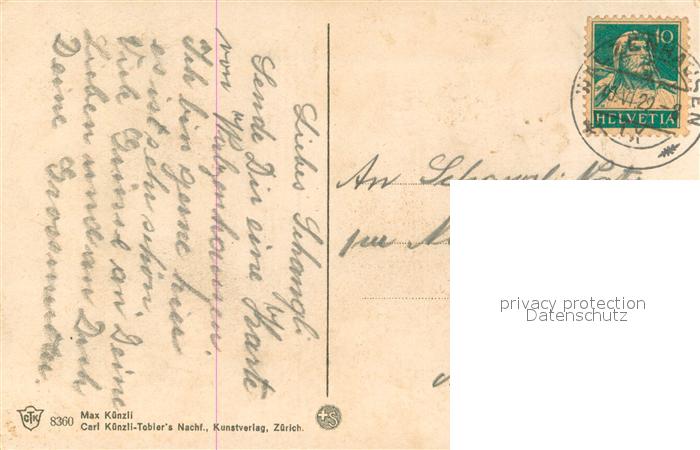 Liebes Schangli
Sende Dir eine Karte
von
Ich bin gerne hier
es ist sehr schön,
Viele Grüsse an Deine
Lieben und an Dich
Deine Grossmutter.
An
per
10
HELVETIA
privacy protection
Datenschutz
CTK
8360 Max Künzli
Carl Künzli-Tobler's Nachf., Kunstverlag, Zürich.